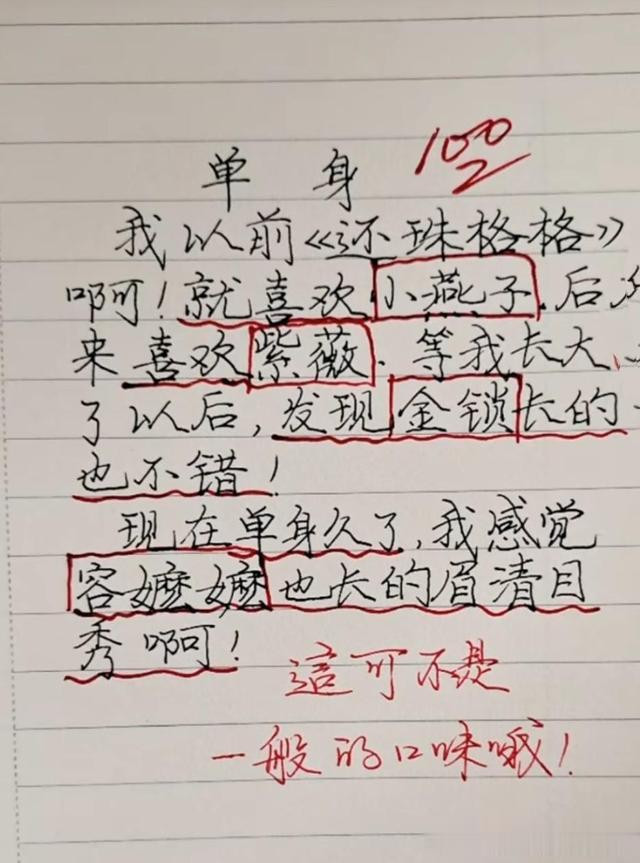 100
单身
我以前《还珠格格》
啊!就喜欢小燕子.后
来喜欢紫薇.等我长大
了以后,发现金锁长的
也不错!
现在单身久了,我感觉
容嬷嬷也长的眉清目
秀啊!
這可不是
一般的口味哦!